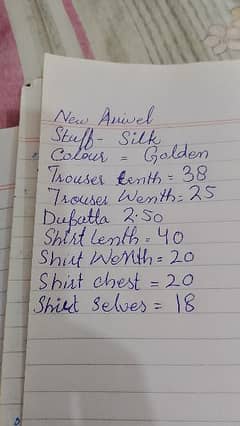 New Arrivel
Stuff - Silk
Colour = Golden
Trouser Lenth = 38
Trouser Wenth = 25
Dupatta 2.50
Shirt Lenth = 40
Shirt Wenth = 20
Shirt chest = 20
Shirt Selves = 18